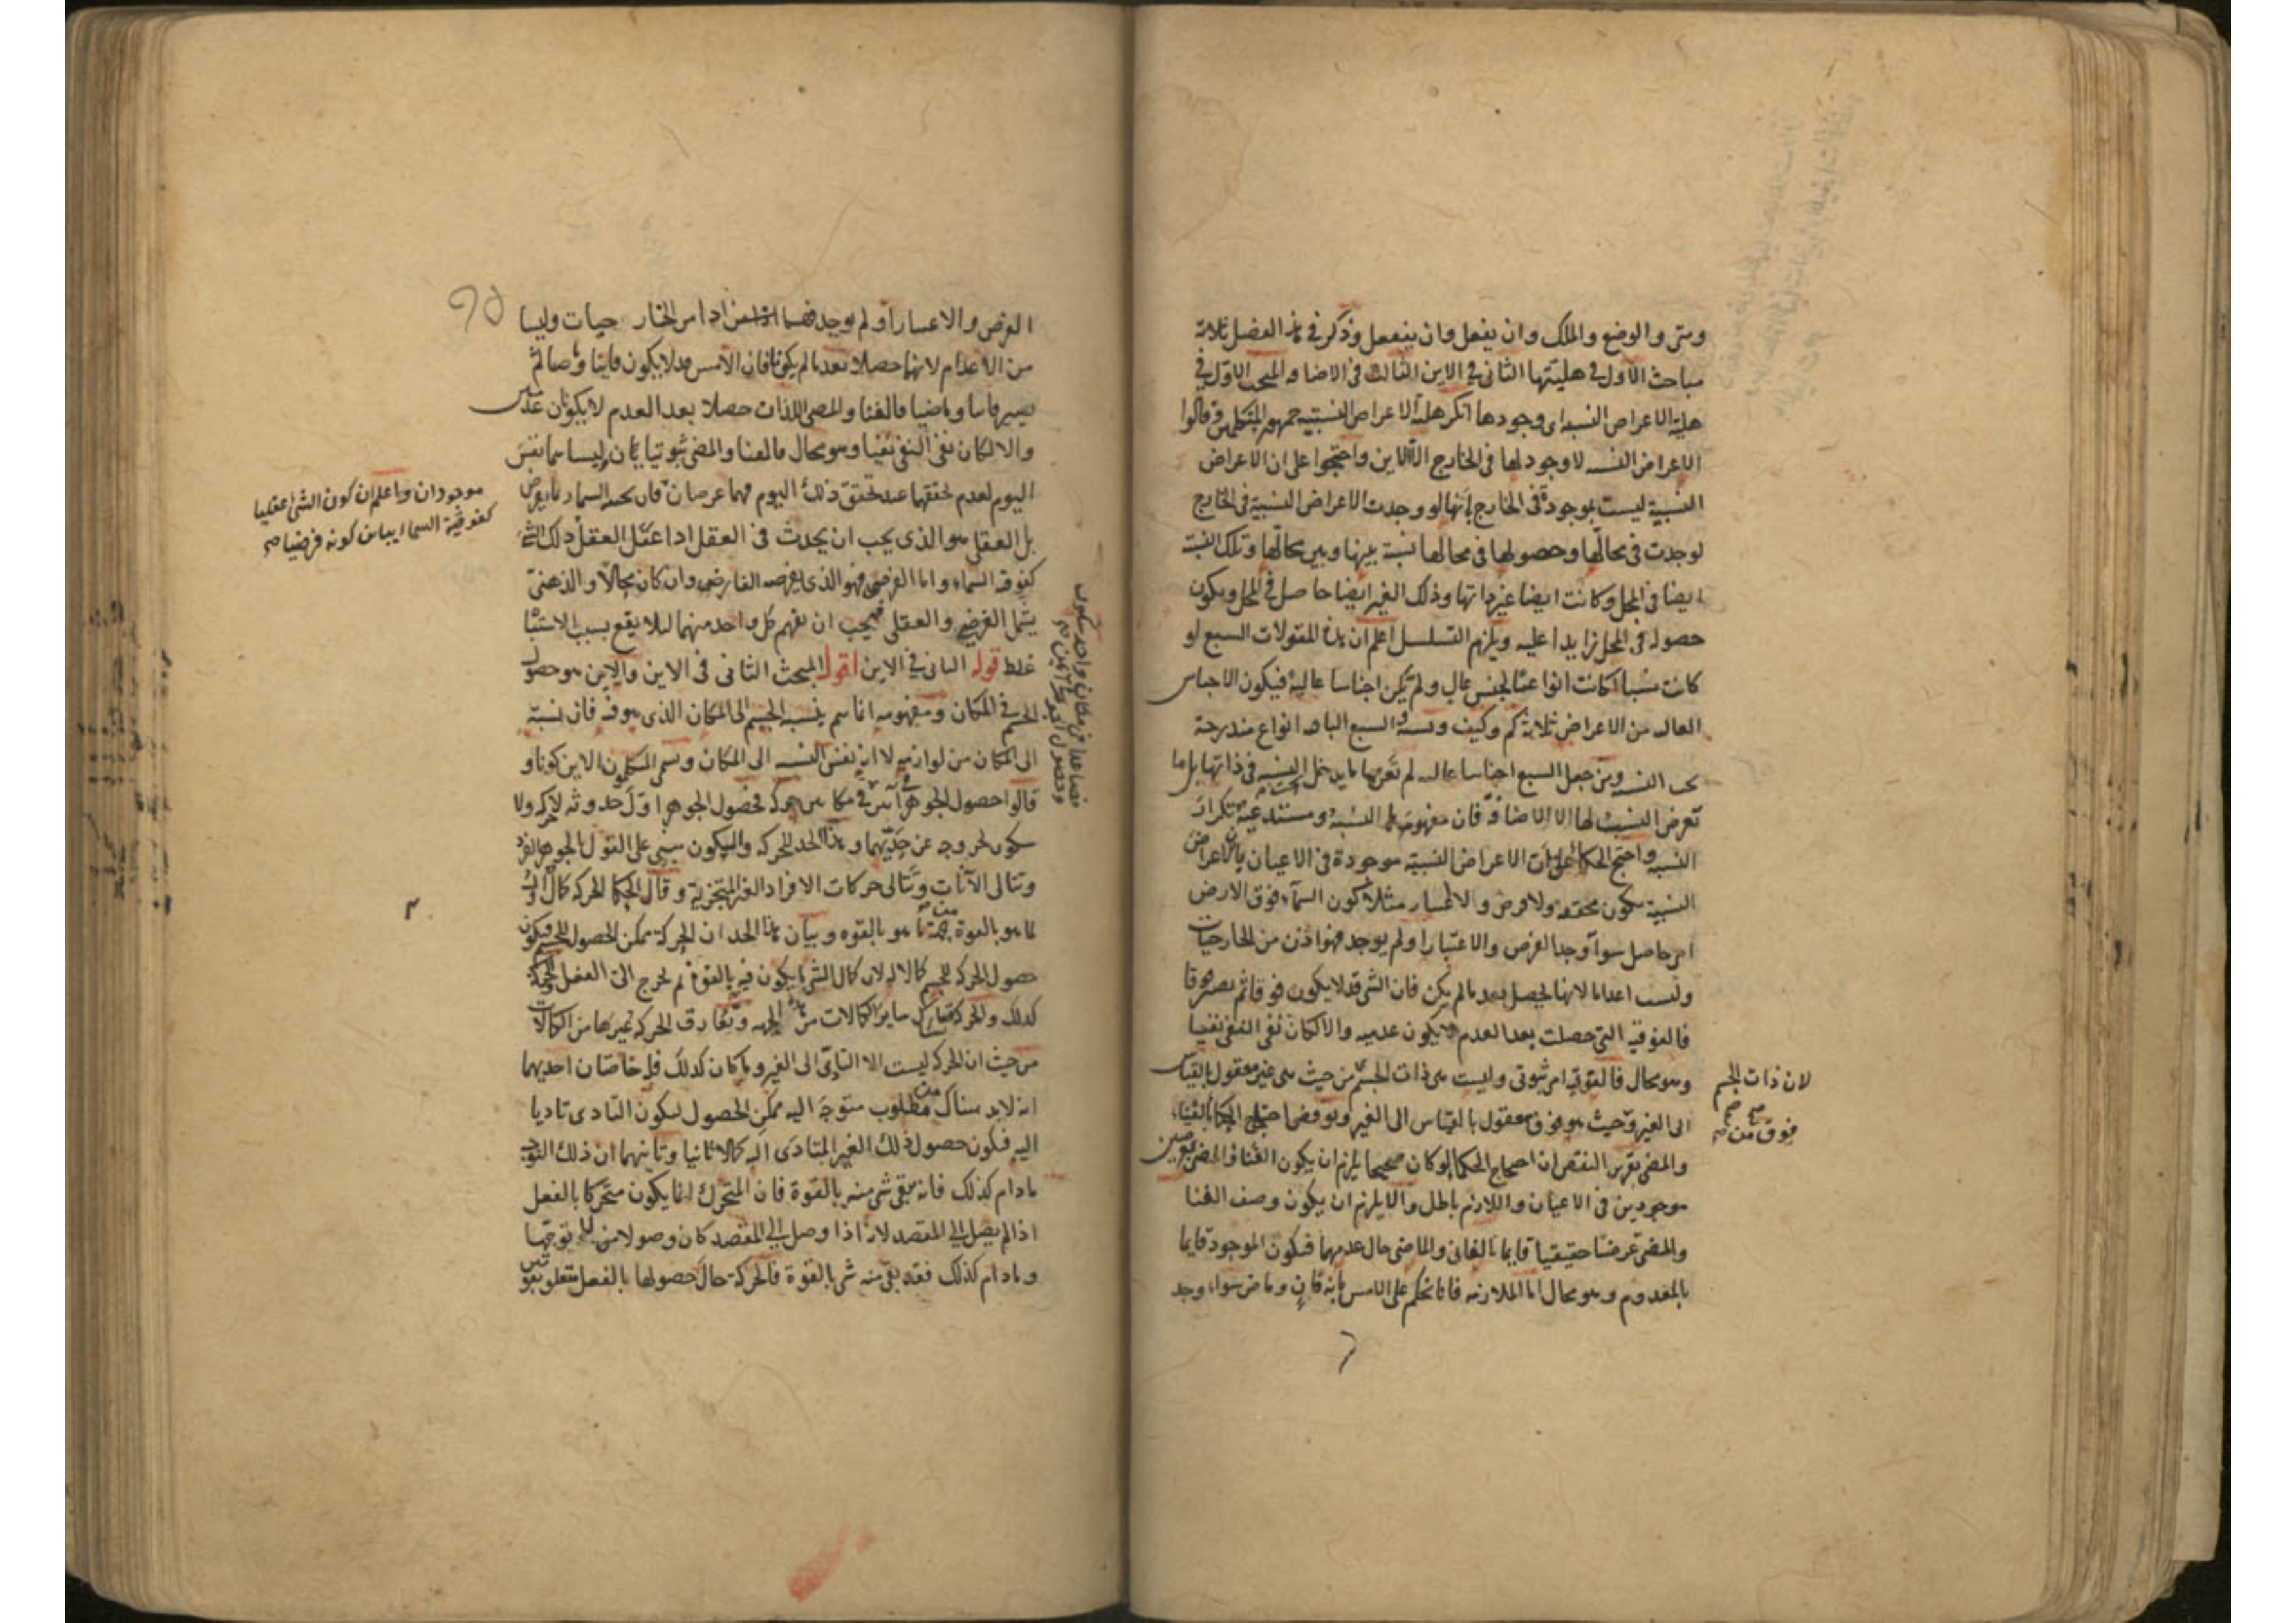 ومتى والوضع والملك وان يفعل وان ينفعل وذكر في هذا الفصل ثلاثة
مباحث الاول في هليتها الثاني في الاين الثالث في الاضافه المبحث الاول في
هلية الاعراض النسبيه اى وجودها انكر هلية الاعراض النسبيه جمهور المتكلمين وقالوا
الاعراض النسبيه لا وجود لها فى الخارج الا الاين واحتجوا على ان الاعراض
النسبية ليست بموجودة فى الخارج بانها لو وجدت الاعراض النسبية فى الخارج
لوجدت فى محالها وحصولها فى محالها نسبة بينها وبين محالها وتلك النسبة
ايضا فى المحل وكانت ايضا غير ذاتها وذلك الغير ايضا حاصل فى المحل ويكون
حصوله فى المحل زايدا عليه ويلزم التسلسل اعلم ان هذه المقولات السبع لو
كانت نسبا لكانت انواعا لجنس عال ولم تكن اجناسا عالية فيكون الاجناس
العاليه من الاعراض ثلاثة كم وكيف ونسبه والسبع الباقيه انواع مندرجة
تحت النسبه ومن جعل السبع اجناسا عاليه لم تعرفها بما يدخل النسبه فى ذاتها بل بما
تعرض النسبة لها الا الاضافة فان مفهومها النسبة ومستدعية تكرار
النسبه واحتج الحكماء على ان الاعراض النسبية موجودة فى الاعيان بان الاعراض
النسبية تكون محققه ولا فرض ولا اعتبار مثلا كون السماء فوق الارض
امر حاصل سوآ وجد الفرض والاعتبار او لم يوجد فهو اذن من الخارجيات
وليست اعداما لانها تحصل بعد ما لم يكن فان الشي قد لا يكون فوقا ثم يصير فوقا
فالفوقيه التى حصلت بعد العدم لا يكون عدميه والا لكان نفى النفى نفيا
وهو محال فالفوقية امر ثبوتى وليست هى ذات الجسم من حيث هى غير معقول بالقياس
الى الغير وحيث هو فوق معقول بالقياس الى الغير ونوقضا حجتا الحكما بالفناء
والمضى تقرير النقض ان احتجاج الحكما لو كان صحيحا يلزم ان يكون الفنا والمضى عرضين
موجودين فى الاعيان واللازم باطل والا يلزم ان يكون وصف الفنا
والمضى عرضا حقيقيا قايما بالفانى والماضى حال عدمهما فيكون الموجود قايما
بالمعدوم وهو محال اما الملازمه فانا نحكم على الامس بانه فان وماض سواء وجد
لان ذات الجسم
صح صح
فوق من صح
الفرض والاعتبار أو لم يوجد فهما اذا من الخارجيات وليسا
من الاعدام لانهما حصلا بعد ما لم يكونا فان الامس قد لا يكون فانيا وماضيا ثم
يصير فانيا وماضيا فالفنا والمضى اللذان حصلا بعد العدم لا يكونان عدميين
والا لكان نفى النفى نفيا وهو محال فالفنا والمضى ثبوتيان وليسا هما نفس
اليوم لعدم تحققهما عند تحقق ذلك اليوم فهما عرضان
بل العقلى هو الذى يجب ان يحدث فى العقل اذا عقل العقل ذلك الشى
كفوقية السماء واما الفرضى فهو الذى يفرضه الفارض وان كان محالا والذهنى
يشمل الفرضى والعقلى فيجب ان نفهم كل واحد منهما لئلا يقع بسبب الاشتباه
غلط قوله الثانى فى الاين اقول المبحث الثانى فى الاين والاين هو حصول
الجسم فى المكان ومفهومه انما يتم بنسبة الجسم الى المكان الذى هو فيه فان نسبته
الى المكان من لوازمه لا انه نفس النسبه الى المكان وسمى المتكلمون الاين كونا و
قالوا حصول الجوهر فى آنين فى مكانين حركه فحصول الجوهر اول حدوثه لا حركه ولا
سكون لخروجه عن حديهما وهذا الحد للحركه والسكون مبنى على القول بالجوهر الفرد
وتتالى الآنات وتتالى حركات الافراد الغير المتجزية وقال الحكما الحركه كمال اول
لما هو بالقوة من جهة ما هو بالقوه وبيان هذا الحد ان الحركة ممكن الحصول للجسم فيكون
حصول الحركه للجسم كمالا له لان كمال الشى ما يكون فيه بالقوة ثم يخرج الى الفعل والحركة
كذلك والحركة تشارك ساير الكمالات من هذه الجهه وتفارق الحركه غيرها من الكمالات
من حيث ان الحركه ليست الا التادى الى الغير وما كان كذلك فله خاصتان احديهما
انه لابد هناك من مطلوب متوجه اليه ممكن الحصول ليكون التادى تاديا
اليه فيكون حصول ذلك الغير المتادى اليه كمالا ثانيا وثانيهما ان ذلك التوجه
مادام كذلك فانه يبقى شى منه بالقوة فان المتحرك انما يكون متحركا بالفعل
اذا لم يصل الى المقصد لانه اذا وصل الى المقصد كان وصولا منه لا توجها
ومادام كذلك فقد بقى منه شى بالقوة فالحركة حال حصولها بالفعل متعلق بقوتين
موجودان واعلم ان كون الشى عقليا
كفوقية السما يباين كونه فرضيا صح
فصاعدا فى مكان واحد سكون